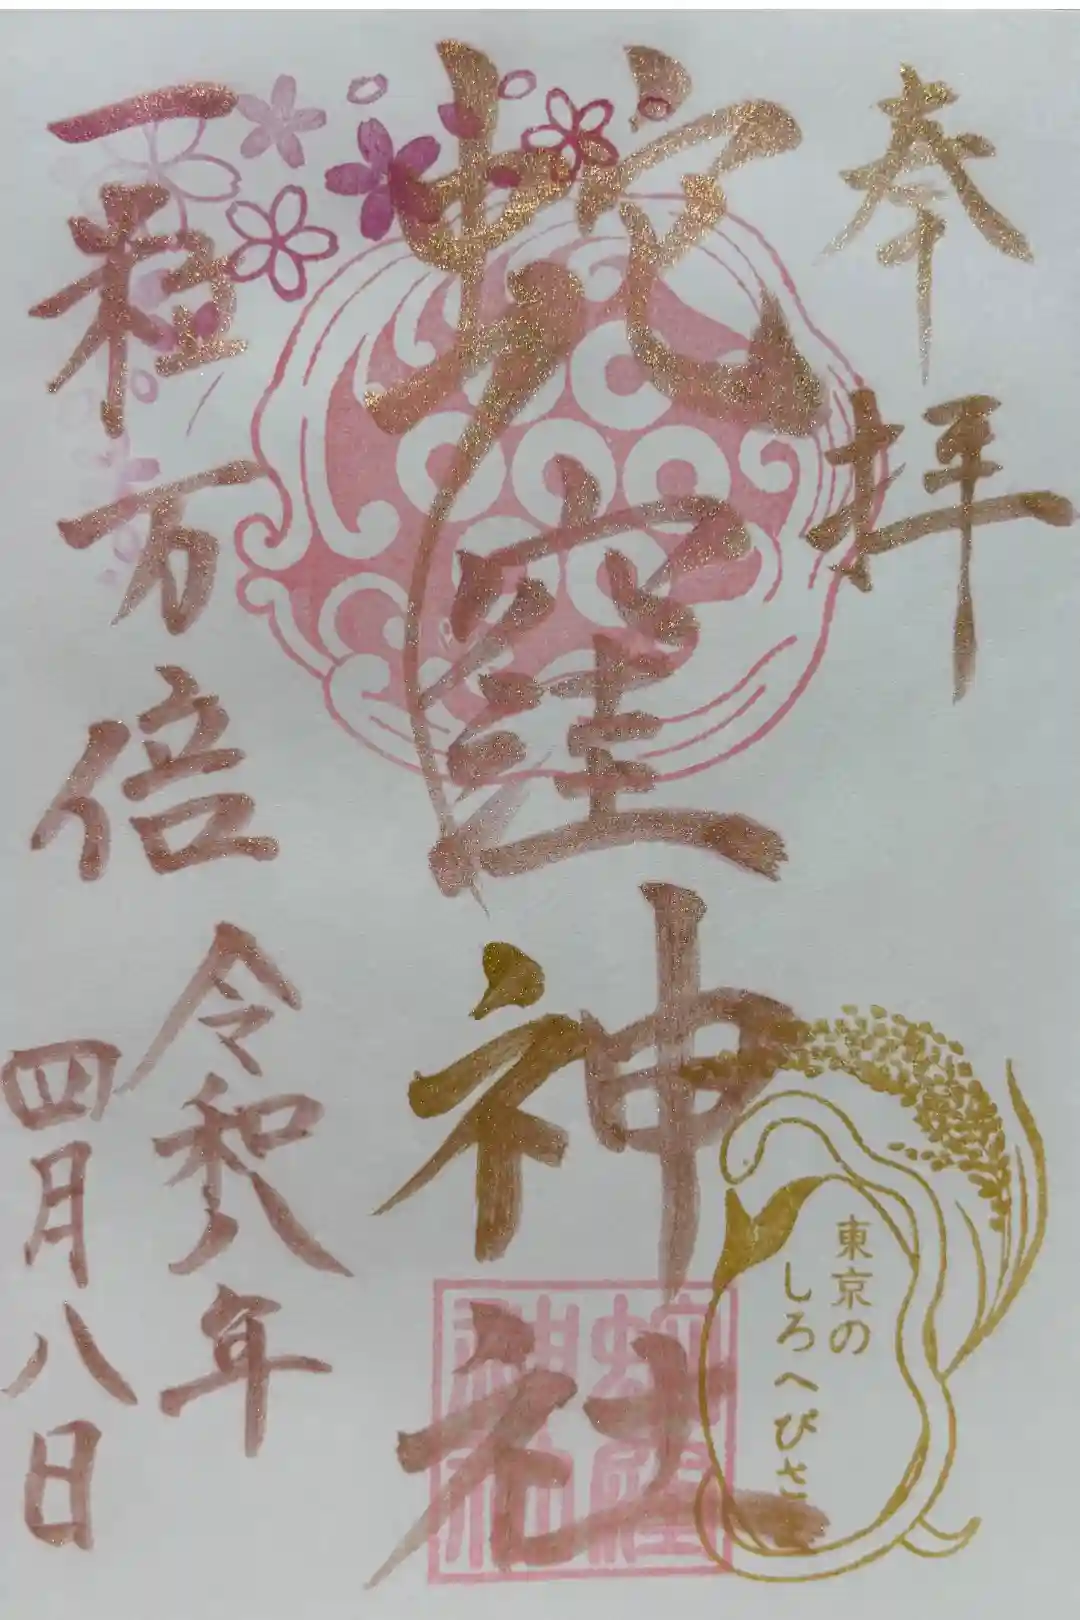 奉拝
蛇窪神社
一粒万倍
令和八年
四月八日
東京の
しろへびさま
蛇窪
神社